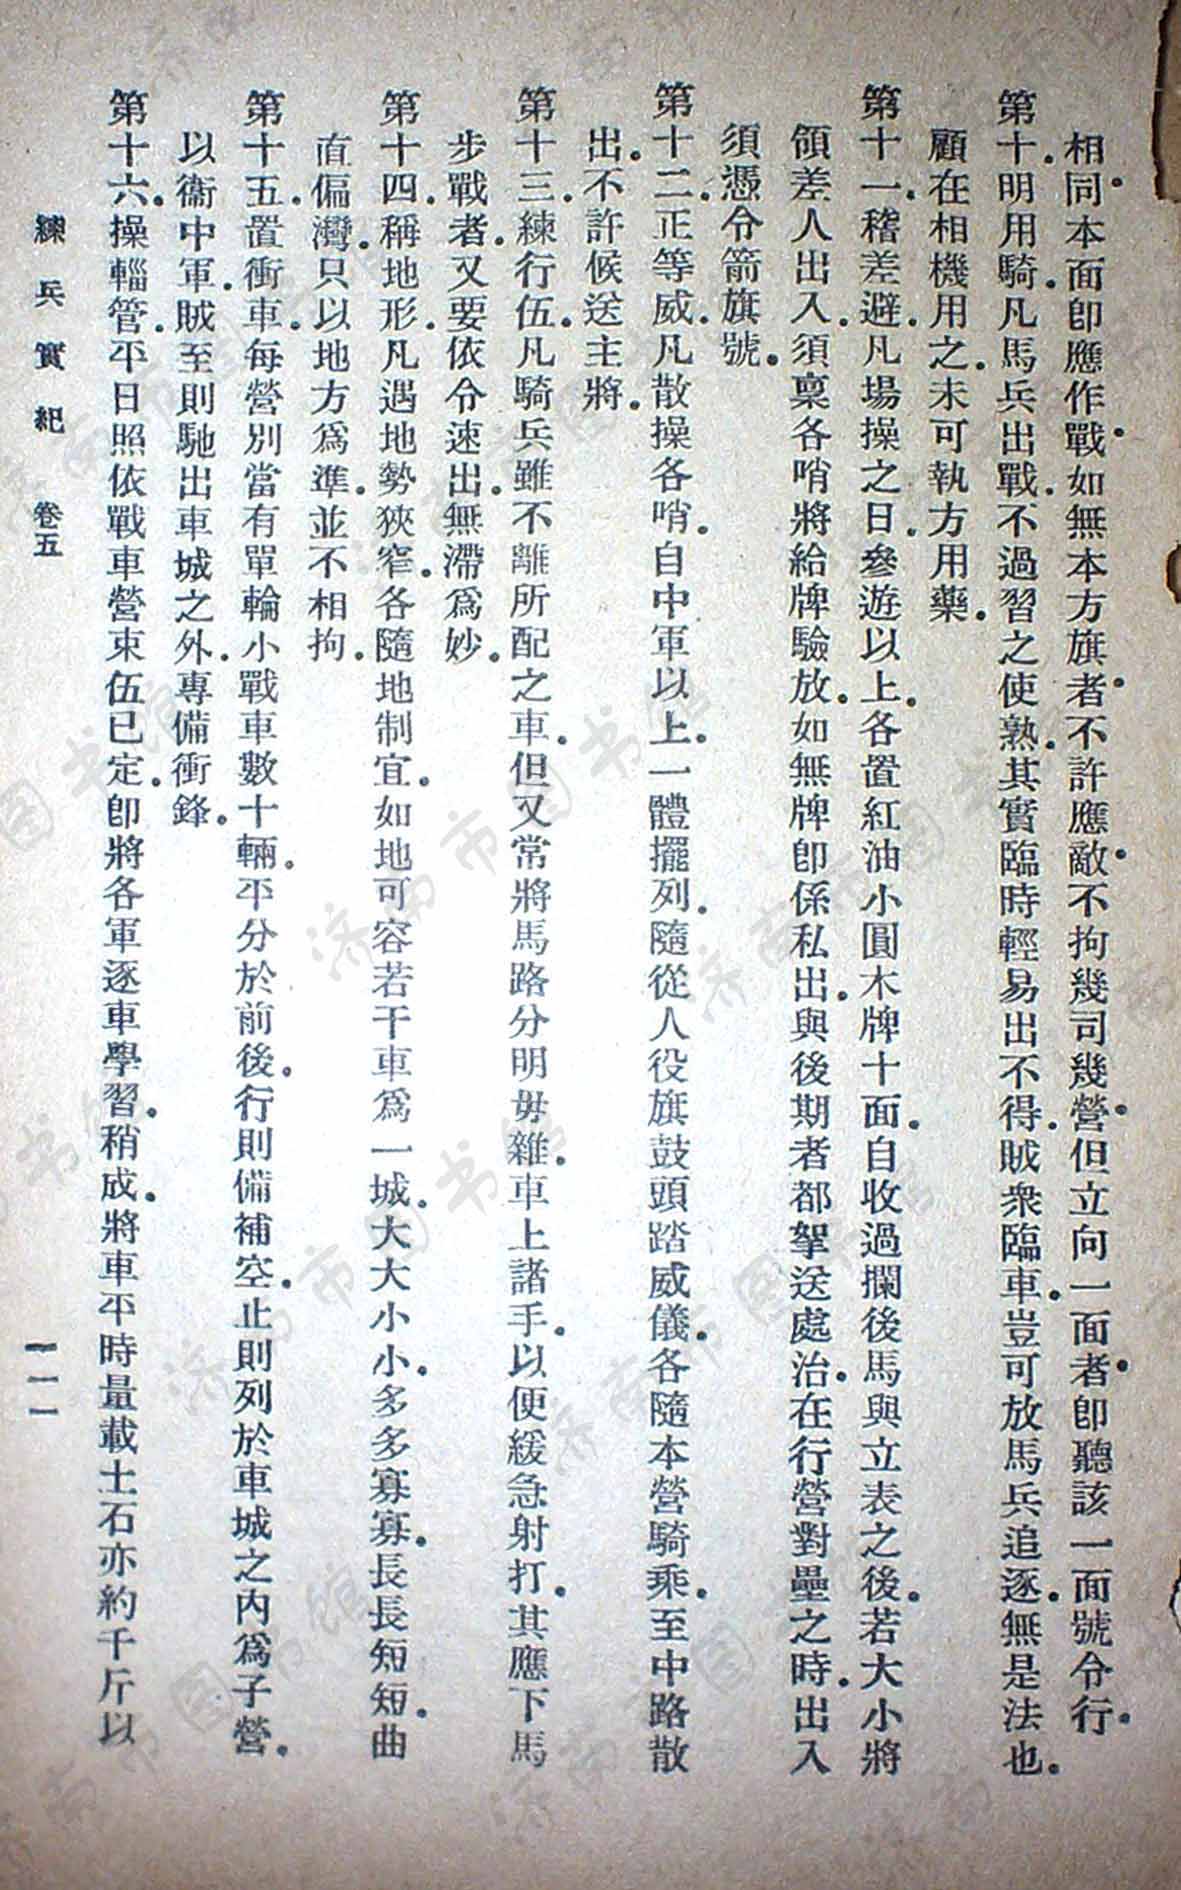 相同.本面卽應作戰.如無本方旗者.不許應敵.不拘幾司幾營.但立向一面者.卽聽該一面號令行.
第十.明用騎.凡馬兵出戰.不過習之使熟.其實臨時輕易出不得.賊衆臨車.豈可放馬兵追逐.無是法也.
顧在相機用之.未可執方用藥.
第十一.稽差避.凡場操之日.參遊以上.各置紅油小圓木牌十面.自收過攔後馬與立表之後.若大小將
領差人出入.須稟各哨將給牌驗放.如無牌卽係私出.與後期者都拏送處治.在行營對壘之時.出入
須憑令箭旗號.
第十二.正等威.凡散操各哨.自中軍以上.一體擺列.隨從人役旗鼓頭踏威儀.各隨本營騎乘.至中路散
出.不許候送主將.
第十三.練行伍.凡騎兵雖不離所配之車.但又常將馬路分明毋雜.車上諸手.以便緩急射打.其應下馬
步戰者.又要依令速出.無滯爲妙.
第十四.稱地形.凡遇地勢狹窄.各隨地制宜.如地可容若干車爲一城.大大小小.多多寡寡.長長短短.曲
直偏灣.只以地方爲準.並不相拘.
第十五.置衝車.每營別當有單輪小戰車數十輛.平分於前後.行則備補空.止則列於車城之內爲子營.
以衞中軍.賊至則馳出車城之外.專備衝鋒.
第十六.操輜管.平日照依戰車營束伍已定.卽將各軍逐車學習.稍成.將車平時量載土石亦約千斤以
練兵實紀 卷五 一一一
济南市图书馆